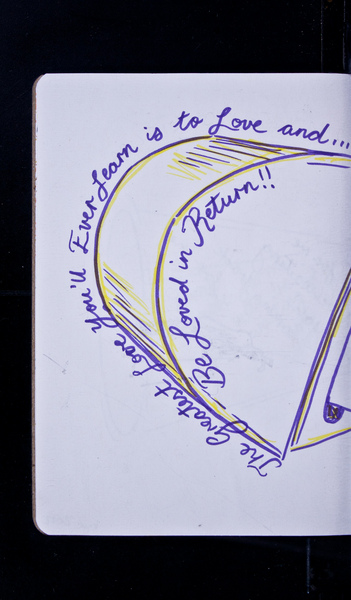 The Greatest Love You'll Ever Learn is to Love and...
Be Loved in Return!!